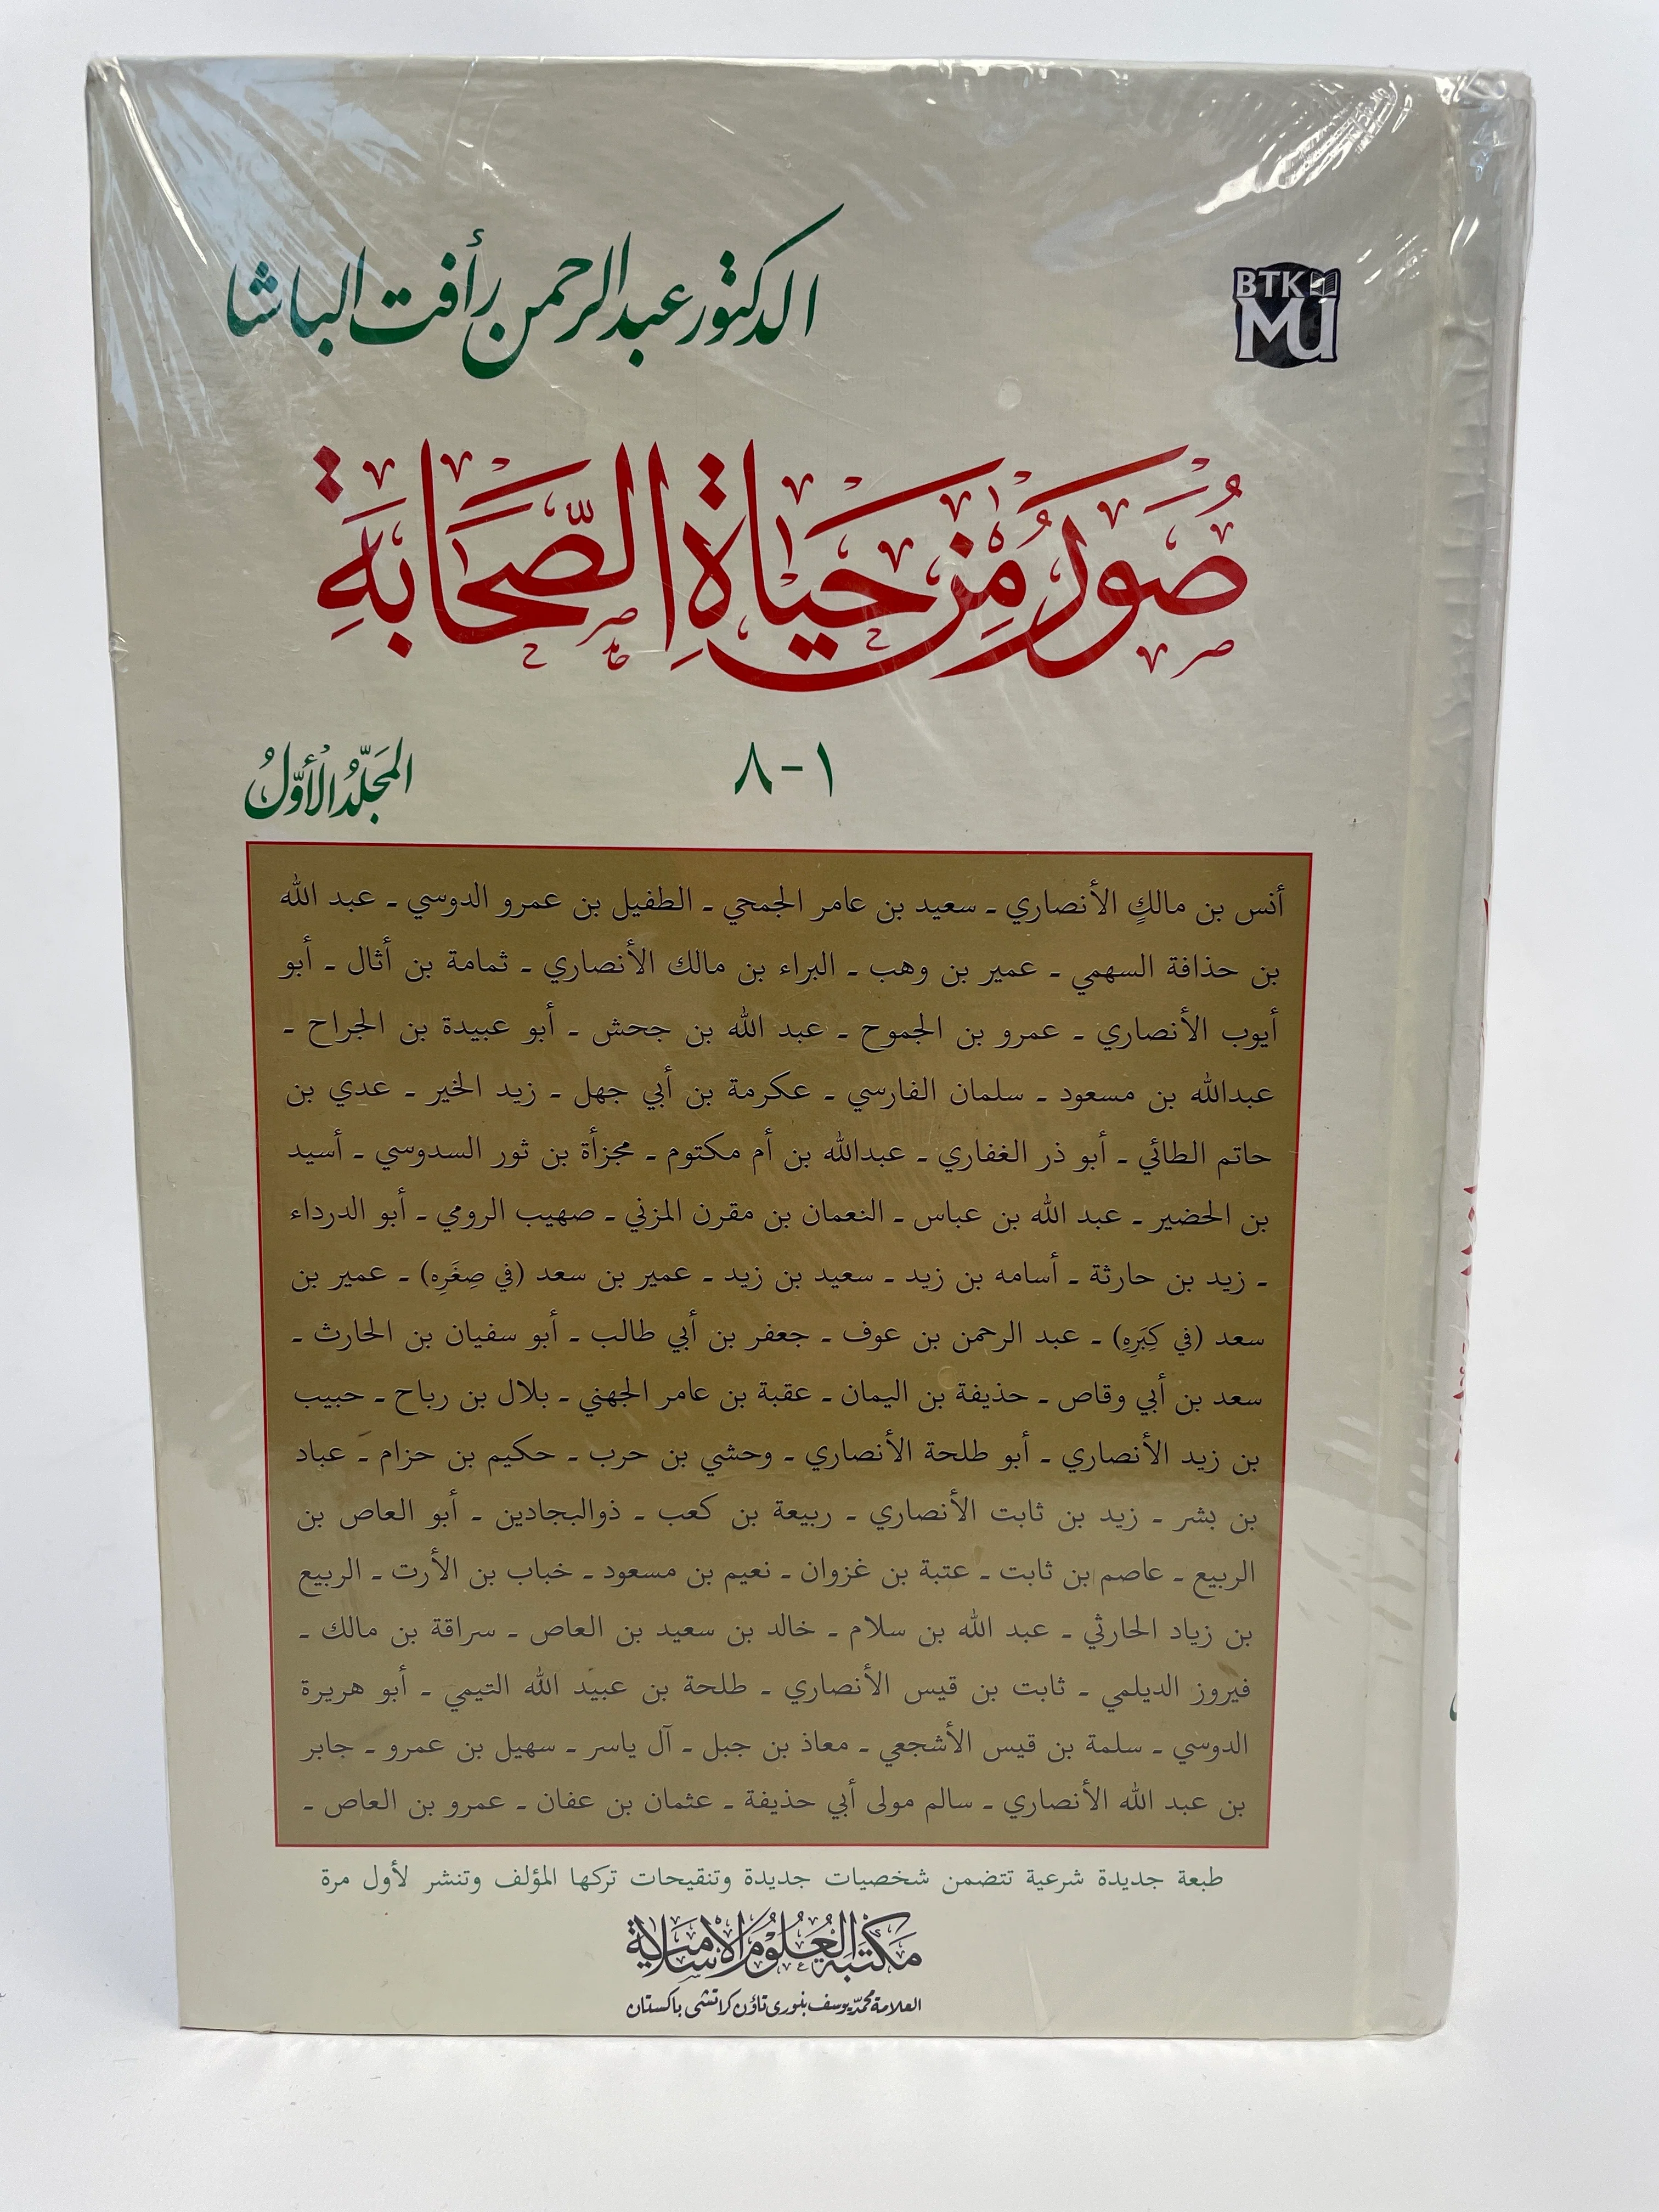 الدكتور عبد الرحمن رأفت الباشا
BTK
MU
صُوَرٌ مِنْ حَيَاةِ الصَّحَابَةِ
١-٨
المجَلّدُ الأوّلُ
أنس بن مالكٍ الأنصاري ـ سعيد بن عامر الجمحي ـ الطفيل بن عمرو الدوسي ـ عبد الله
بن حذافة السهمي ـ عمير بن وهب ـ البراء بن مالك الأنصاري ـ ثمامة بن أثال ـ أبو
أيوب الأنصاري ـ عمرو بن الجموح ـ عبد الله بن جحش ـ أبو عبيدة بن الجراح ـ
عبدالله بن مسعود ـ سلمان الفارسي ـ عكرمة بن أبي جهل ـ زيد الخير ـ عدي بن
حاتم الطائي ـ أبو ذر الغفاري ـ عبدالله بن أم مكتوم ـ مجزأة بن ثور السدوسي ـ أسيد
بن الحضير ـ عبد الله بن عباس ـ النعمان بن مقرن المزني ـ صهيب الرومي ـ أبو الدرداء
ـ زيد بن حارثة ـ أسامه بن زيد ـ سعيد بن زيد ـ عمير بن سعد (في صِغَرِه) ـ عمير بن
سعد (في كِبَرِهِ) ـ عبد الرحمن بن عوف ـ جعفر بن أبي طالب ـ أبو سفيان بن الحارث ـ
سعد بن أبي وقاص ـ حذيفة بن اليمان ـ عقبة بن عامر الجهني ـ بلال بن رباح ـ حبيب
بن زيد الأنصاري ـ أبو طلحة الأنصاري ـ وحشي بن حرب ـ حكيم بن حزام ـ عباد
بن بشر ـ زيد بن ثابت الأنصاري ـ ربيعة بن كعب ـ ذوالبجادين ـ أبو العاص بن
الربيع ـ عاصم بن ثابت ـ عتبة بن غزوان ـ نعيم بن مسعود ـ خباب بن الأرت ـ الربيع
بن زياد الحارثي ـ عبد الله بن سلام ـ خالد بن سعيد بن العاص ـ سراقة بن مالك ـ
فيروز الديلمي ـ ثابت بن قيس الأنصاري ـ طلحة بن عبيد الله التيمي ـ أبو هريرة
الدوسي ـ سلمة بن قيس الأشجعي ـ معاذ بن جبل ـ آل ياسر ـ سهيل بن عمرو ـ جابر
بن عبد الله الأنصاري ـ سالم مولى أبي حذيفة ـ عثمان بن عفان ـ عمرو بن العاص ـ
طبعة جديدة شرعية تتضمن شخصيات جديدة وتنقيحات تركها المؤلف وتنشر لأول مرة
مَكتَبَة العُلُوم الإسلامية
العلامة محمّد يوسف بنوری تاؤن کراتشی باکستان